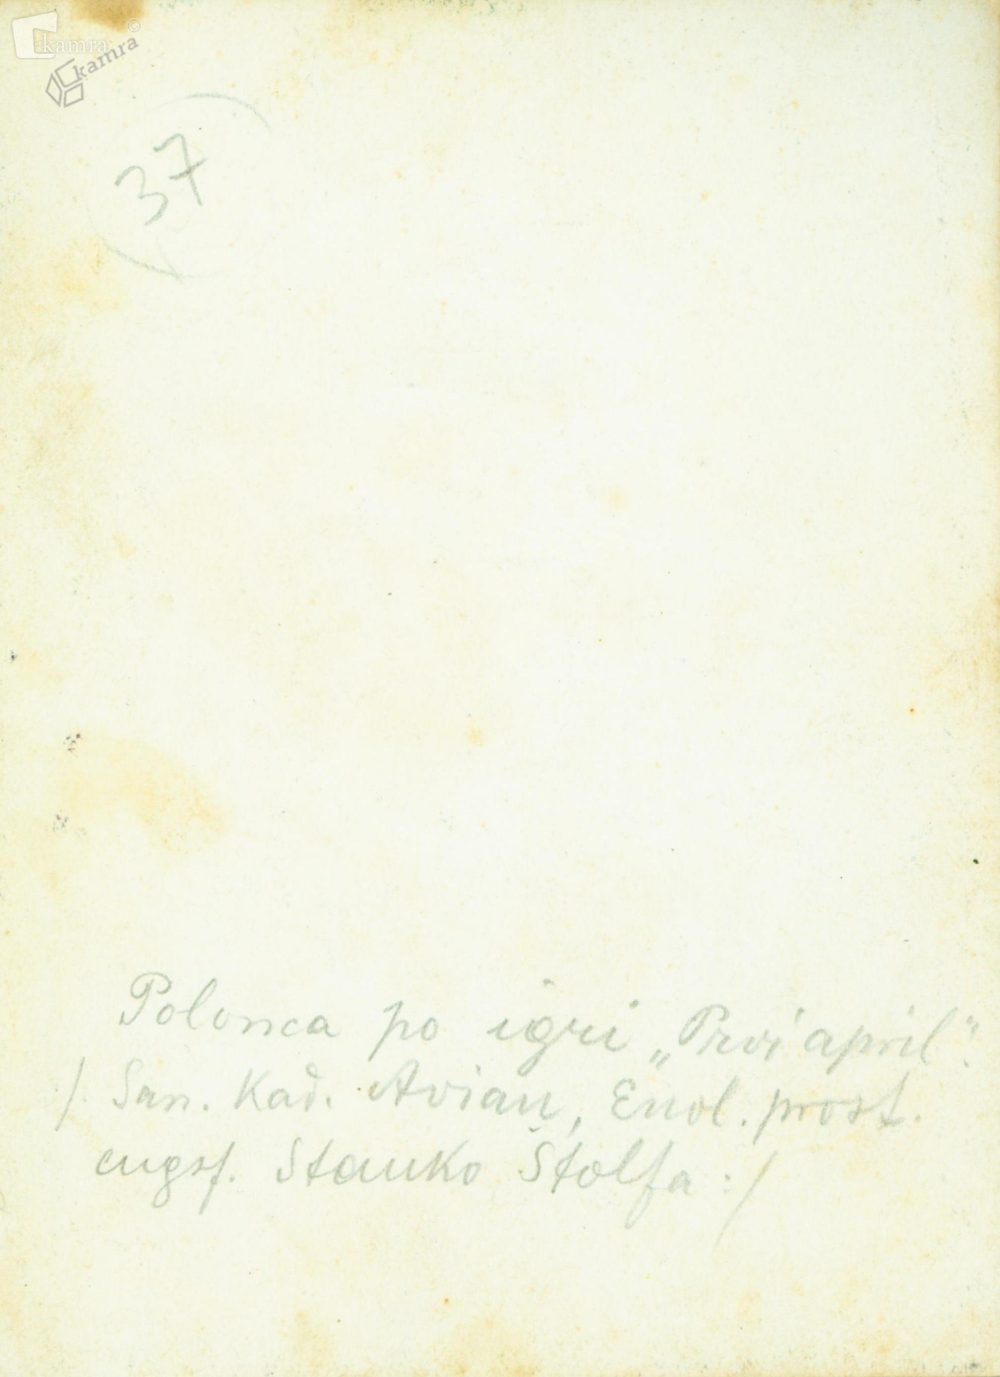 kamra
kamra
37
Polonca po igri „Prvi april".
/ San. Kad. Avian, Enol. prost.
Stanko Štolfa :/